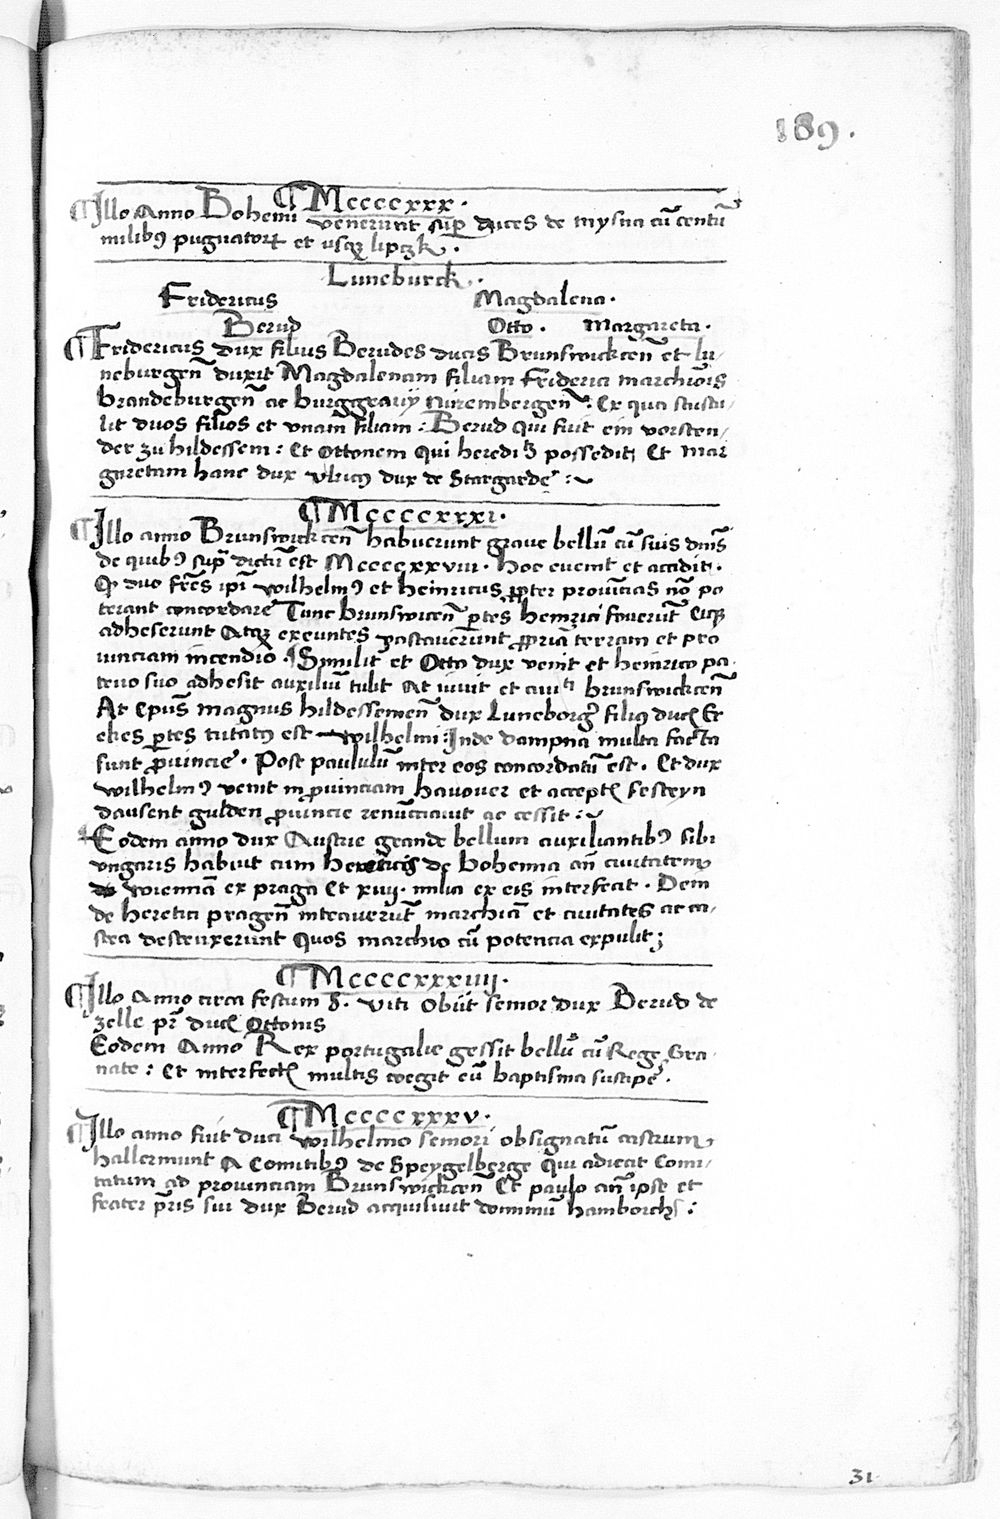 189.
¶ Mccccxxx.
¶ Illo Anno Bohemi venerūt sup̄ duces de mysna cū centū
milibꝰ pugnatorꝝ et usqꝫ lipczk.
Luneburck.
Fridericus Magdalena.
Bernd Otto. Margareta.
¶ Fridericus dux filius Berndes ducis Brunswickceñ et lu-
neburgeñ duxit Magdalenam filiam Friderici marchiōis
brandeburgeñ ac burggravij Nurembergeñ: Ex qua suscu-
lit duos filios et vnam filiam: Bernd qui fuit ein vorsten-
der zu hildessem: Et Ottonem qui possedit Et Mar
garetam hanc dux vlricꝰ dux de Stargarde:
¶ Mccccxxxi.
¶ Illo anno Brunswickceñ habuerunt graue bellū cū suis dn̄is
de quibꝰ sup̄ dictū est Mccccxxviii. Hoc euenit et accidit.
Qͥ duo fr̄es ip̄i wilhelmꝰ et heinricus ꝓpter prouīcias nō po
terant concordare Tunc brunswiceñ ꝑtes heinrici fouerūt Eiqꝫ
adheserunt Atqꝫ exeuntes vastauerunt ꝓpriā terram et pro
uinciam incendio. ¶ Similit̄ et Otto dux venit et heinrico pa-
truo suo adhesit auxiliū tulit At iuuit et brunswickceñ
At Ep̄us magnus hildessemeñ dux Luneborg̃ filiꝯ Er
ekes ꝑtes tutatꝯ est wilhelmi: Inde dampna multa facta
sunt ꝓuincie. Post paululū inter eos concordatū est. Et dux
wilhelmꝰ venit in ꝓuinciam hanouer et accept̄ sesteyn
dausent gulden ꝓuincie renūciauit ac cessit:
Eodem anno dux Austrie grande bellum auxiliantibꝰ sibi
vngaris habuit cum hereticis de bohemia añ ciuitatem
wiennā ex praga Et xiiij. milia ex eis interfecit. Dein
de heretici prageñ intrauerūt marchiā et ciuitates ac ca-
stra destruxerunt Quos marchio cū potencia expulit;
¶ Mccccxxxiiij.
¶ Illo Anno circa festum S. Viti Obiit senior dux Bernd de
zelle pr̄ duc̄ Ottonis
Eodem Anno Rex portugalie gessit bellū cū Rege Gra-
nate: Et interfect̄ multis coegit eū baptisma suscipe᷑.
¶ Mccccxxxv.
¶ Illo anno fuit duci wilhelmo seniori obsignatū castrum
hallermunt A Comitibꝰ de Speygelberge Qui adiecit Comi-
tatum ad prouinciam Brunswickceñ Et paulo añ ipse et
frater pr̄is sui dux Bernd acquisiuit dominiū hamborch:
31